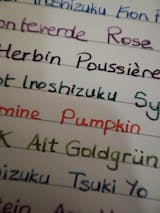 Inoshizuku Kon P
onteverde Rose
Herbin Poussière
ot Inoshizuku Sy
mine Pumpkin
K Alt Goldgrün
hizuku Tsuki Yo